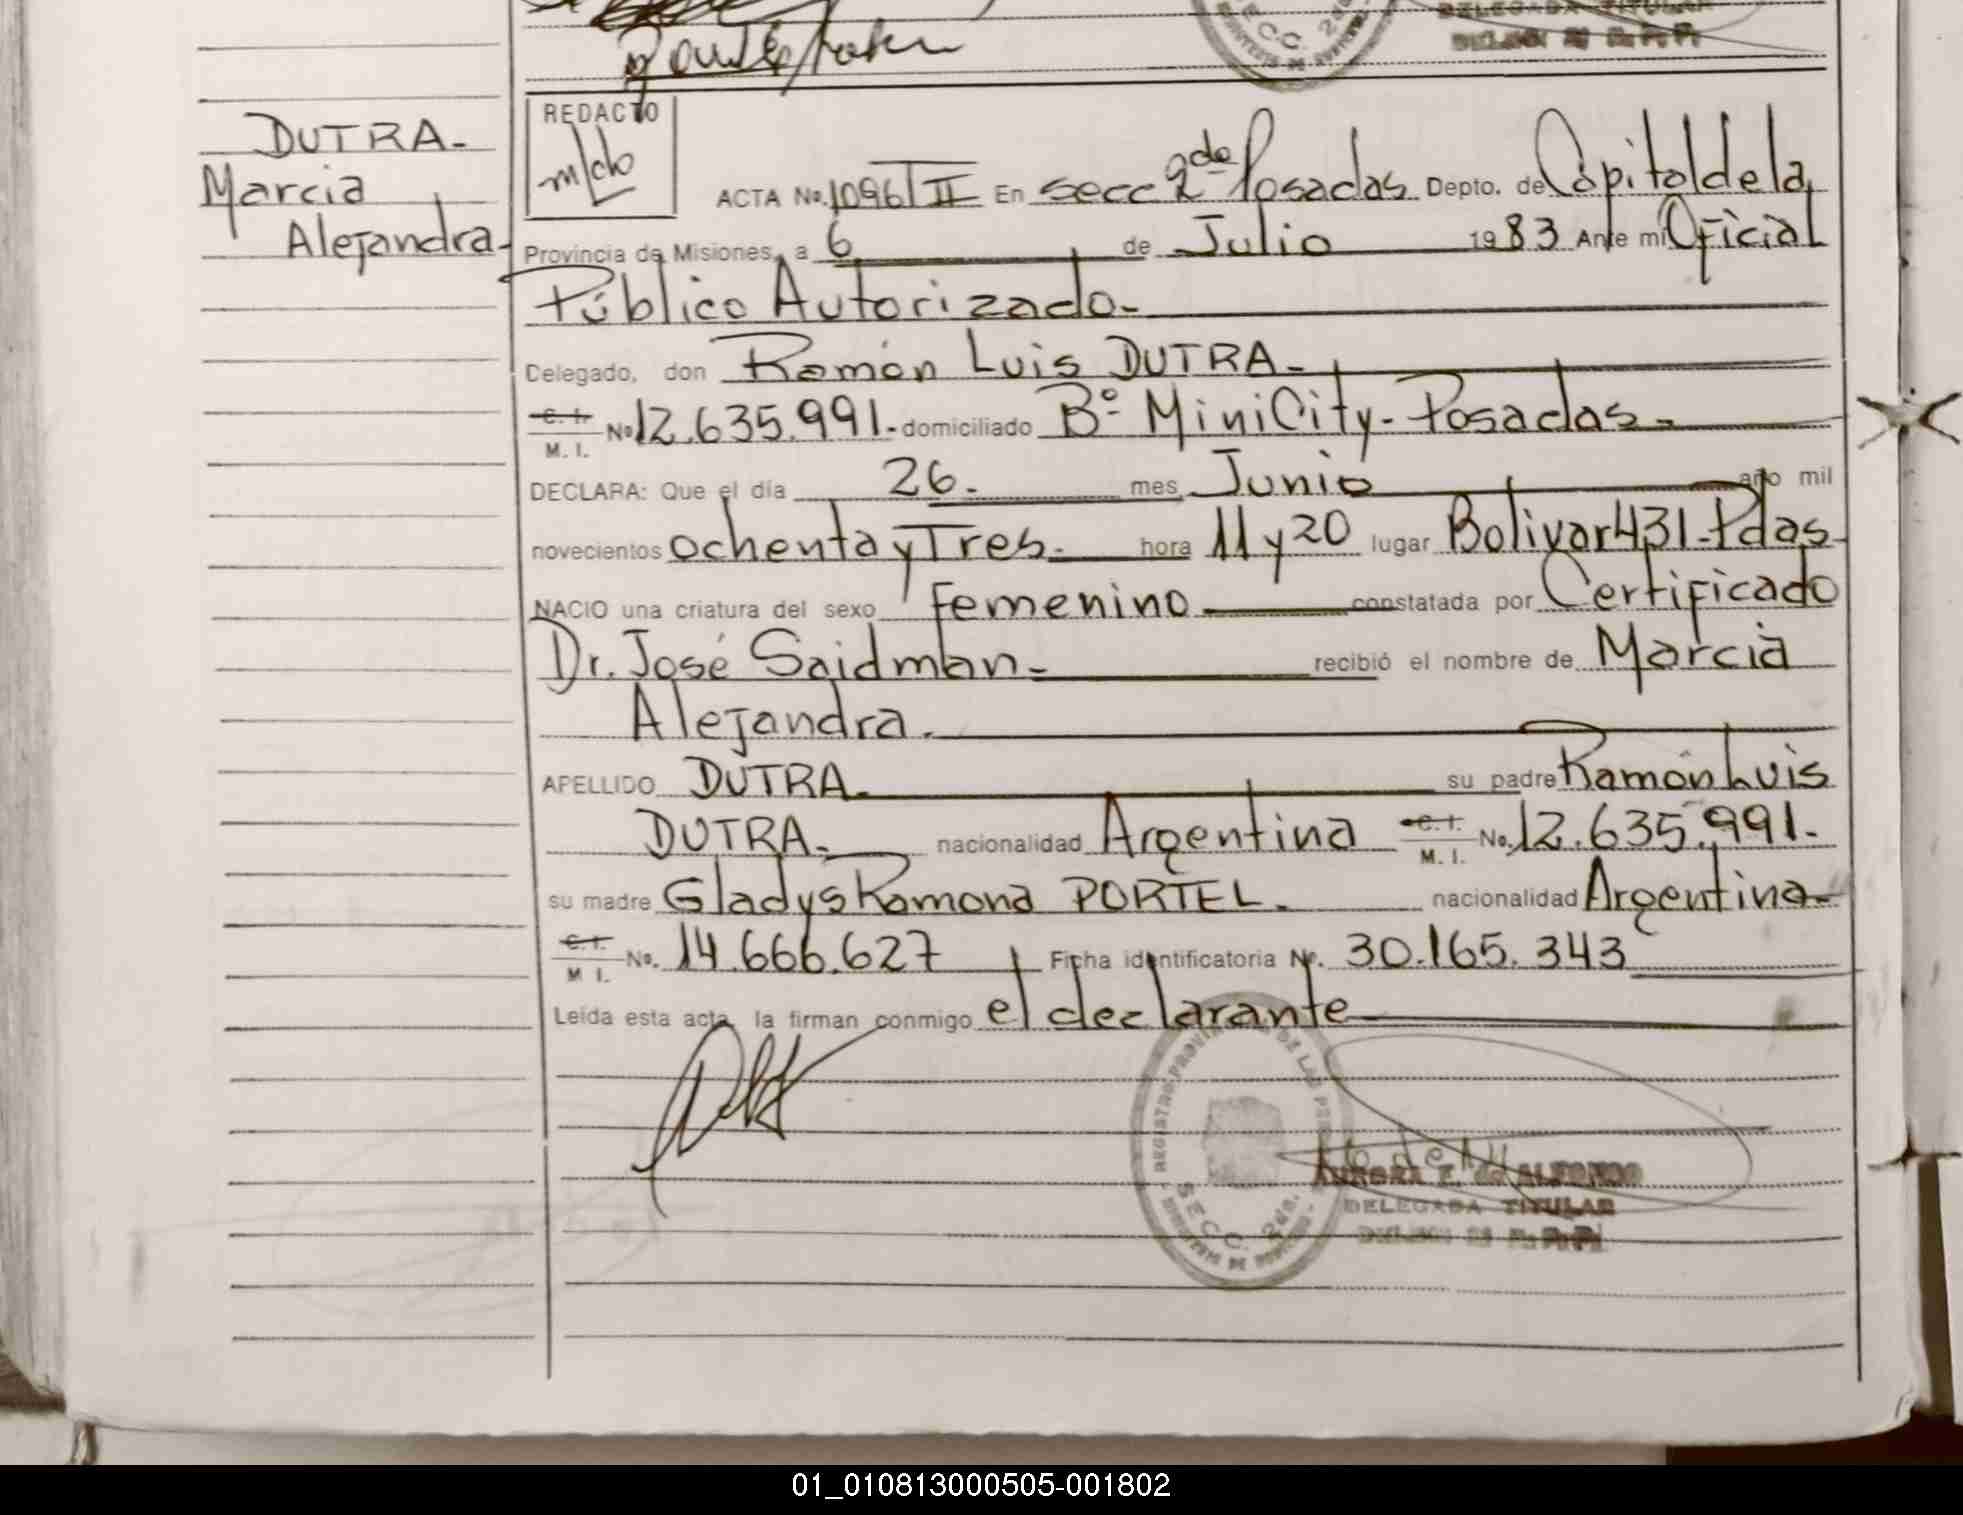 DUTRA-
Marcia
Alejandra-
REDACTO
ACTA No. 1096/II En secc 2da Posadas Depto. de Capital de la
Provincia de Misiones, a 6 de Julio 1983 Ante mi Oficial
Público Autorizado-
Delegado, don Ramón Luis DUTRA-
C. I.
M. I. No 12.635.991.- domiciliado B°- MiniCity- Posadas-
DECLARA: Que el día 26.- mes Junio año mil
novecientos ochenta y Tres- hora 11 y 20 lugar Bolivar 431-Pdas-
NACIO una criatura del sexo femenino constatada por Certificado
Dr. José Saidman- recibió el nombre de Marcia
Alejandra.-
APELLIDO DUTRA- su padre Ramón Luis
DUTRA- nacionalidad Argentina C. I. M. I. No. 12.635.991-
su madre Gladys Ramona PORTEL- nacionalidad Argentina-
C. I.
M. I. No. 14.666.627 Ficha identificatoria No. 30.165.343
Leída esta acta, la firman conmigo el declarante
REGISTRO PROVINCIAL DE LAS
SECC. 2da.
AURORA E. de
DELEGADA TITULAR
01_010813000505-001802